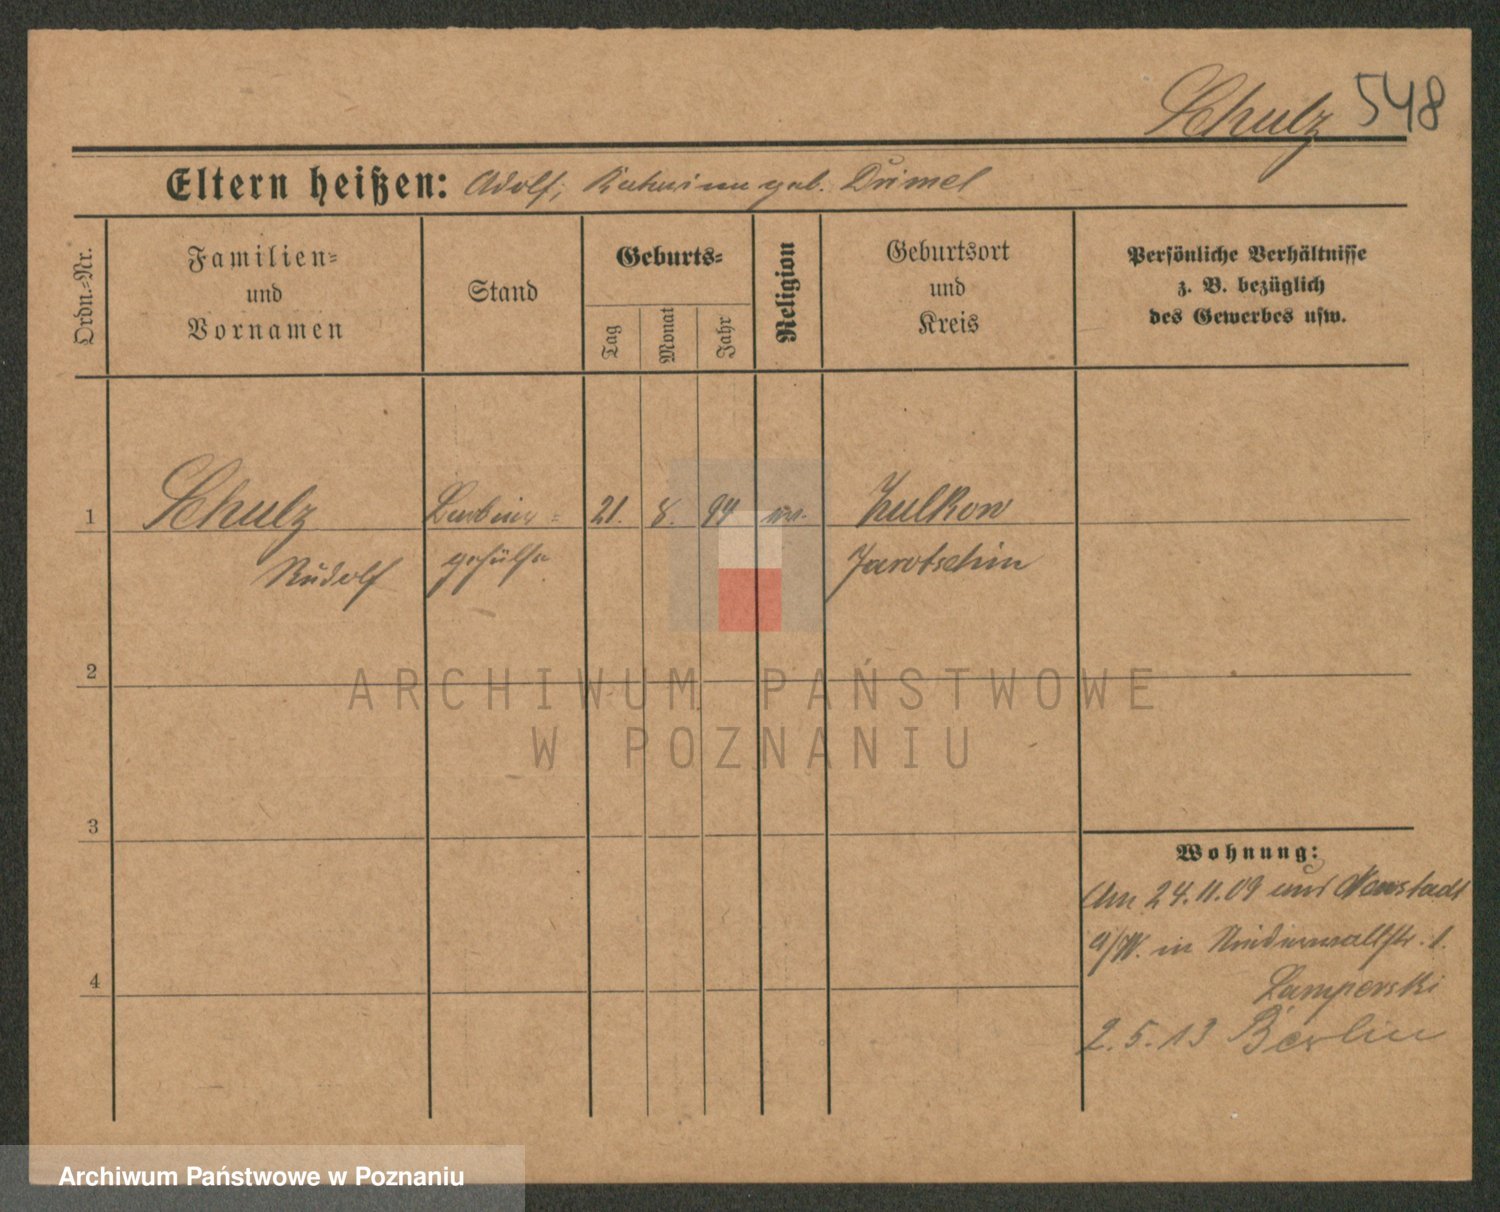 Schulz 548
Eltern heißen: Adolf, geb. Drimel
Ordn.-Nr.
Familien-
und
Vornamen
Stand
Geburts-
Tag
Monat
Jahr
Religion
Geburtsort
und
Kreis
Persönliche Verhältnisse
z. B. bezüglich
des Gewerbes usw.
1
Schulz
Rudolf
gehülfe
21. 8. 94
Zulkow
Jarotschin
2
3
4
Wohnung:
Am 24.11.09 aus Neustadt
a/W. in Niederwallstr. 1.
Lamperski
2.5.13 Berlin
ARCHIWUM PAŃSTWOWE
W POZNANIU
Archiwum Państwowe w Poznaniu